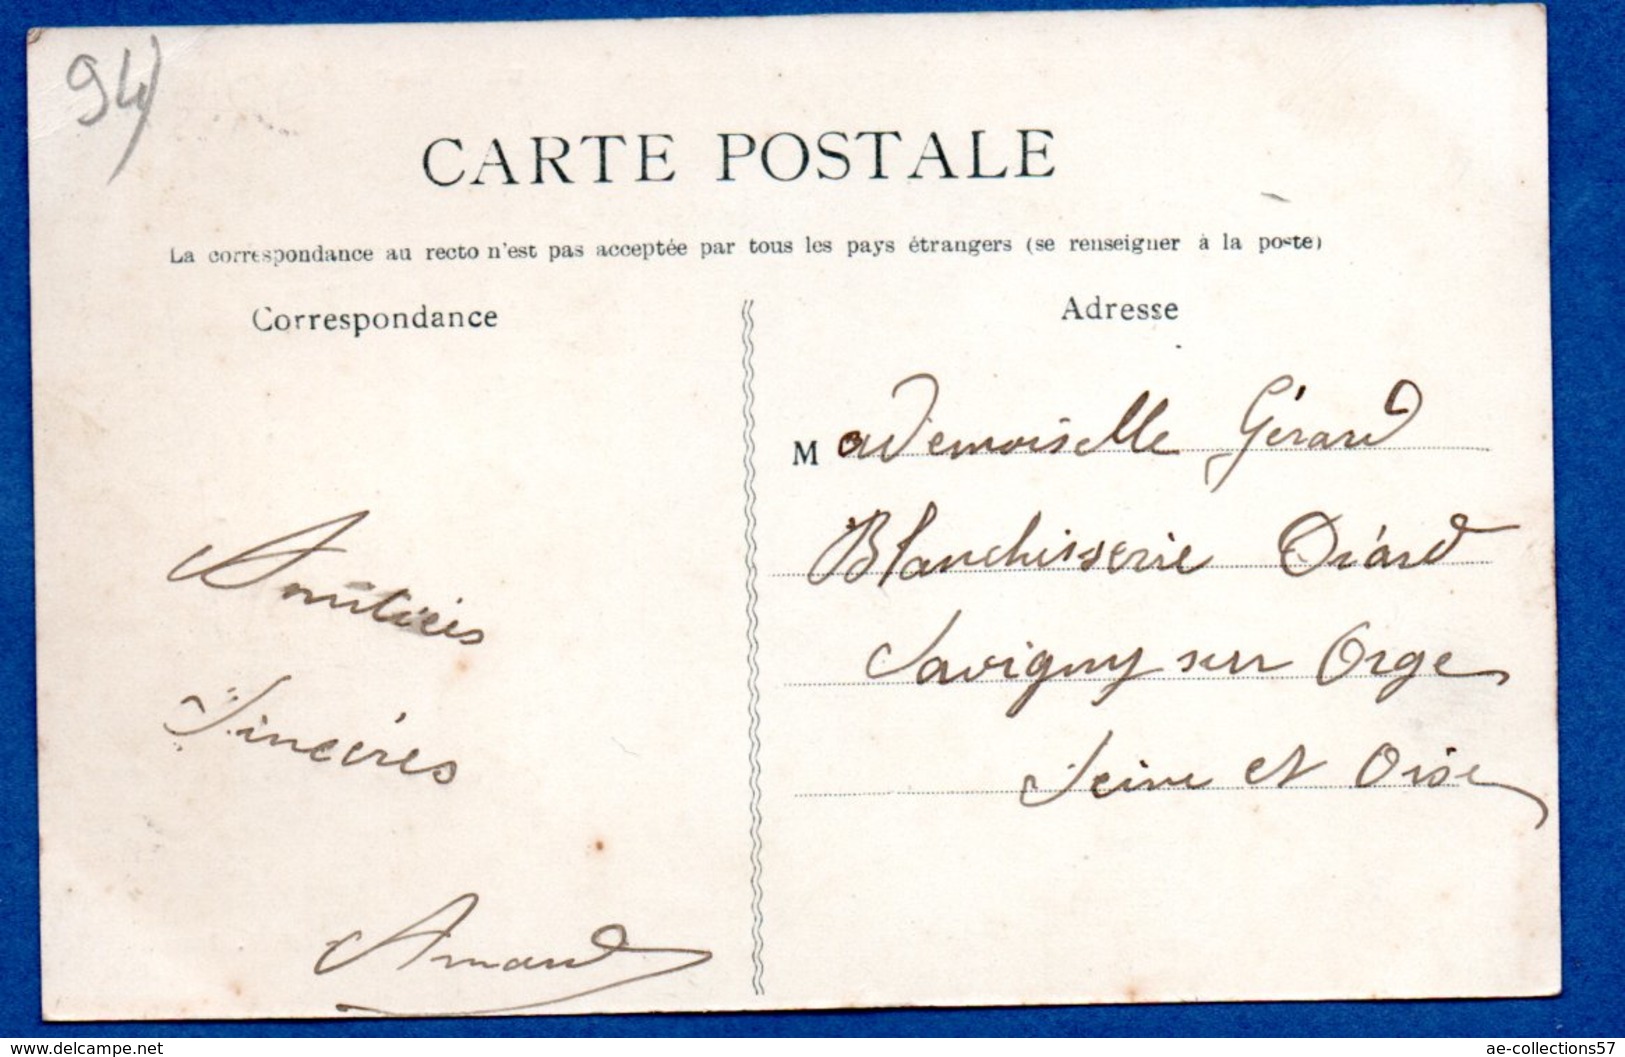 94
CARTE POSTALE
La correspondance au recto n'est pas acceptée par tous les pays étrangers (se renseigner à la poste)
Correspondance
Adresse
Mademoiselle Gérard
Blanchisserie
Savigny sur Orge
Seine et Oise
Amitiés
Sincères
Armand
www.delcampe.net
ae-collections57